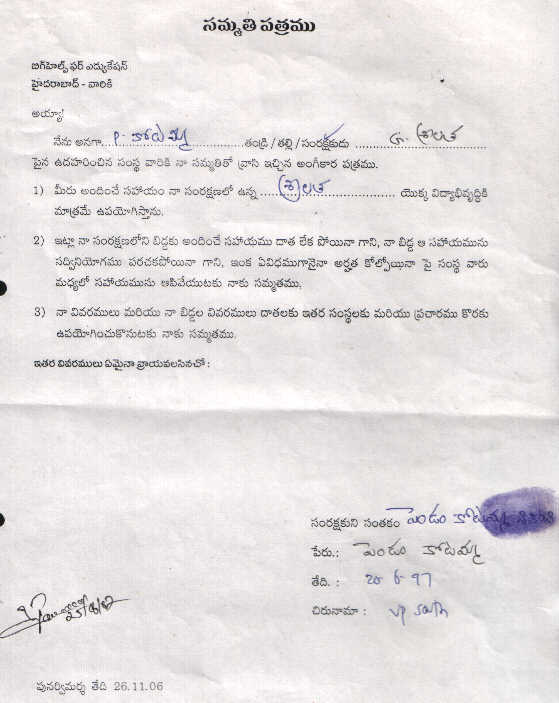 సమ్మతి పత్రము
బిగ్‌హెల్ప్ ఫర్ ఎద్యుకేషన్
హైదరాబాద్ - వారికి
అయ్యా!
నేను అనగా P. కోటమ్మ తండ్రి / తల్లి / సంరక్షకుడు G. శ్రీలత
పైన ఉదహరించిన సంస్థ వారికి నా సమ్మతితో వ్రాసి ఇచ్చిన అంగీకార పత్రము.
1) మీరు అందించే సహాయం నా సంరక్షణలో ఉన్న శ్రీలత యొక్క విద్యాభివృద్ధికి
మాత్రమే ఉపయోగిస్తాను.
2) ఇట్లా నా సంరక్షణలోని బిడ్డకు అందించే సహాయము దాత లేక పోయినా గాని, నా బిడ్డ ఆ సహాయమును
సద్వినియోగము పరచకపోయినా గాని, ఇంక ఏవిధముగానైనా అర్హత కోల్పోయినా పై సంస్థ వారు
మధ్యలో సహాయమును ఆపివేయుటకు నాకు సమ్మతము.
3) నా వివరములు మరియు నా బిడ్డల వివరములు దాతలకు ఇతర సంస్థలకు మరియు ప్రచారము కొరకు
ఉపయోగించుకొనుటకు నాకు సమ్మతము.
ఇతర వివరములు ఏమైనా వ్రాయవలసినచో :
సంరక్షకుని సంతకం పెండెం కోటమ్మ
పేరు.: పెండెం కోటమ్మ
తేది. : 20 6 97
చిరునామా : VP South
పునర్విమర్శ తేది 26.11.06